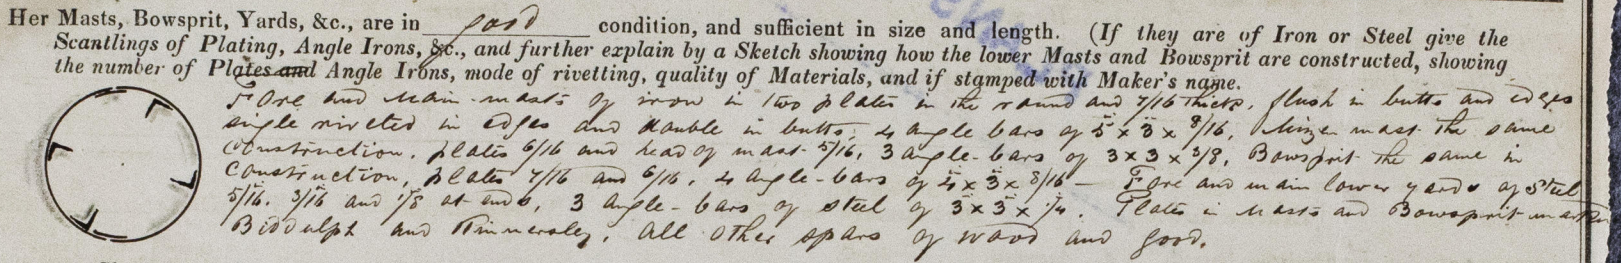 Her Masts, Bowsprit, Yards, &c., are in good condition, and sufficient in size and length. (If they are of Iron or Steel give the
Scantlings of Plating, Angle Irons, &c., and further explain by a Sketch showing how the lower Masts and Bowsprit are constructed, showing
the number of Plates and Angle Irons, mode of rivetting, quality of Materials, and if stamped with Maker's name.
Fore and Main-masts of iron in two plates in the round and 7/16 thick, flush in butts and edges
single riveted in edges and double in butts, 4 angle bars of 5 x 3 x 8/16, Mizen mast the same
construction, plates 6/16 and head of mast 5/16, 3 angle-bars of 3 x 3 x 3/8, Bowsprit the same in
construction, plates 7/16 and 6/16, 4 angle-bars of 4 x 3 x 8/16 — Fore and main lower yards of steel
5/16. 3/16 and 1/8 at ends, 3 angle-bars of steel of 3 x 3 x 1/4. Plates in Masts and Bowsprit
Biddulph and Kinnersley. All other spars of wood and good.